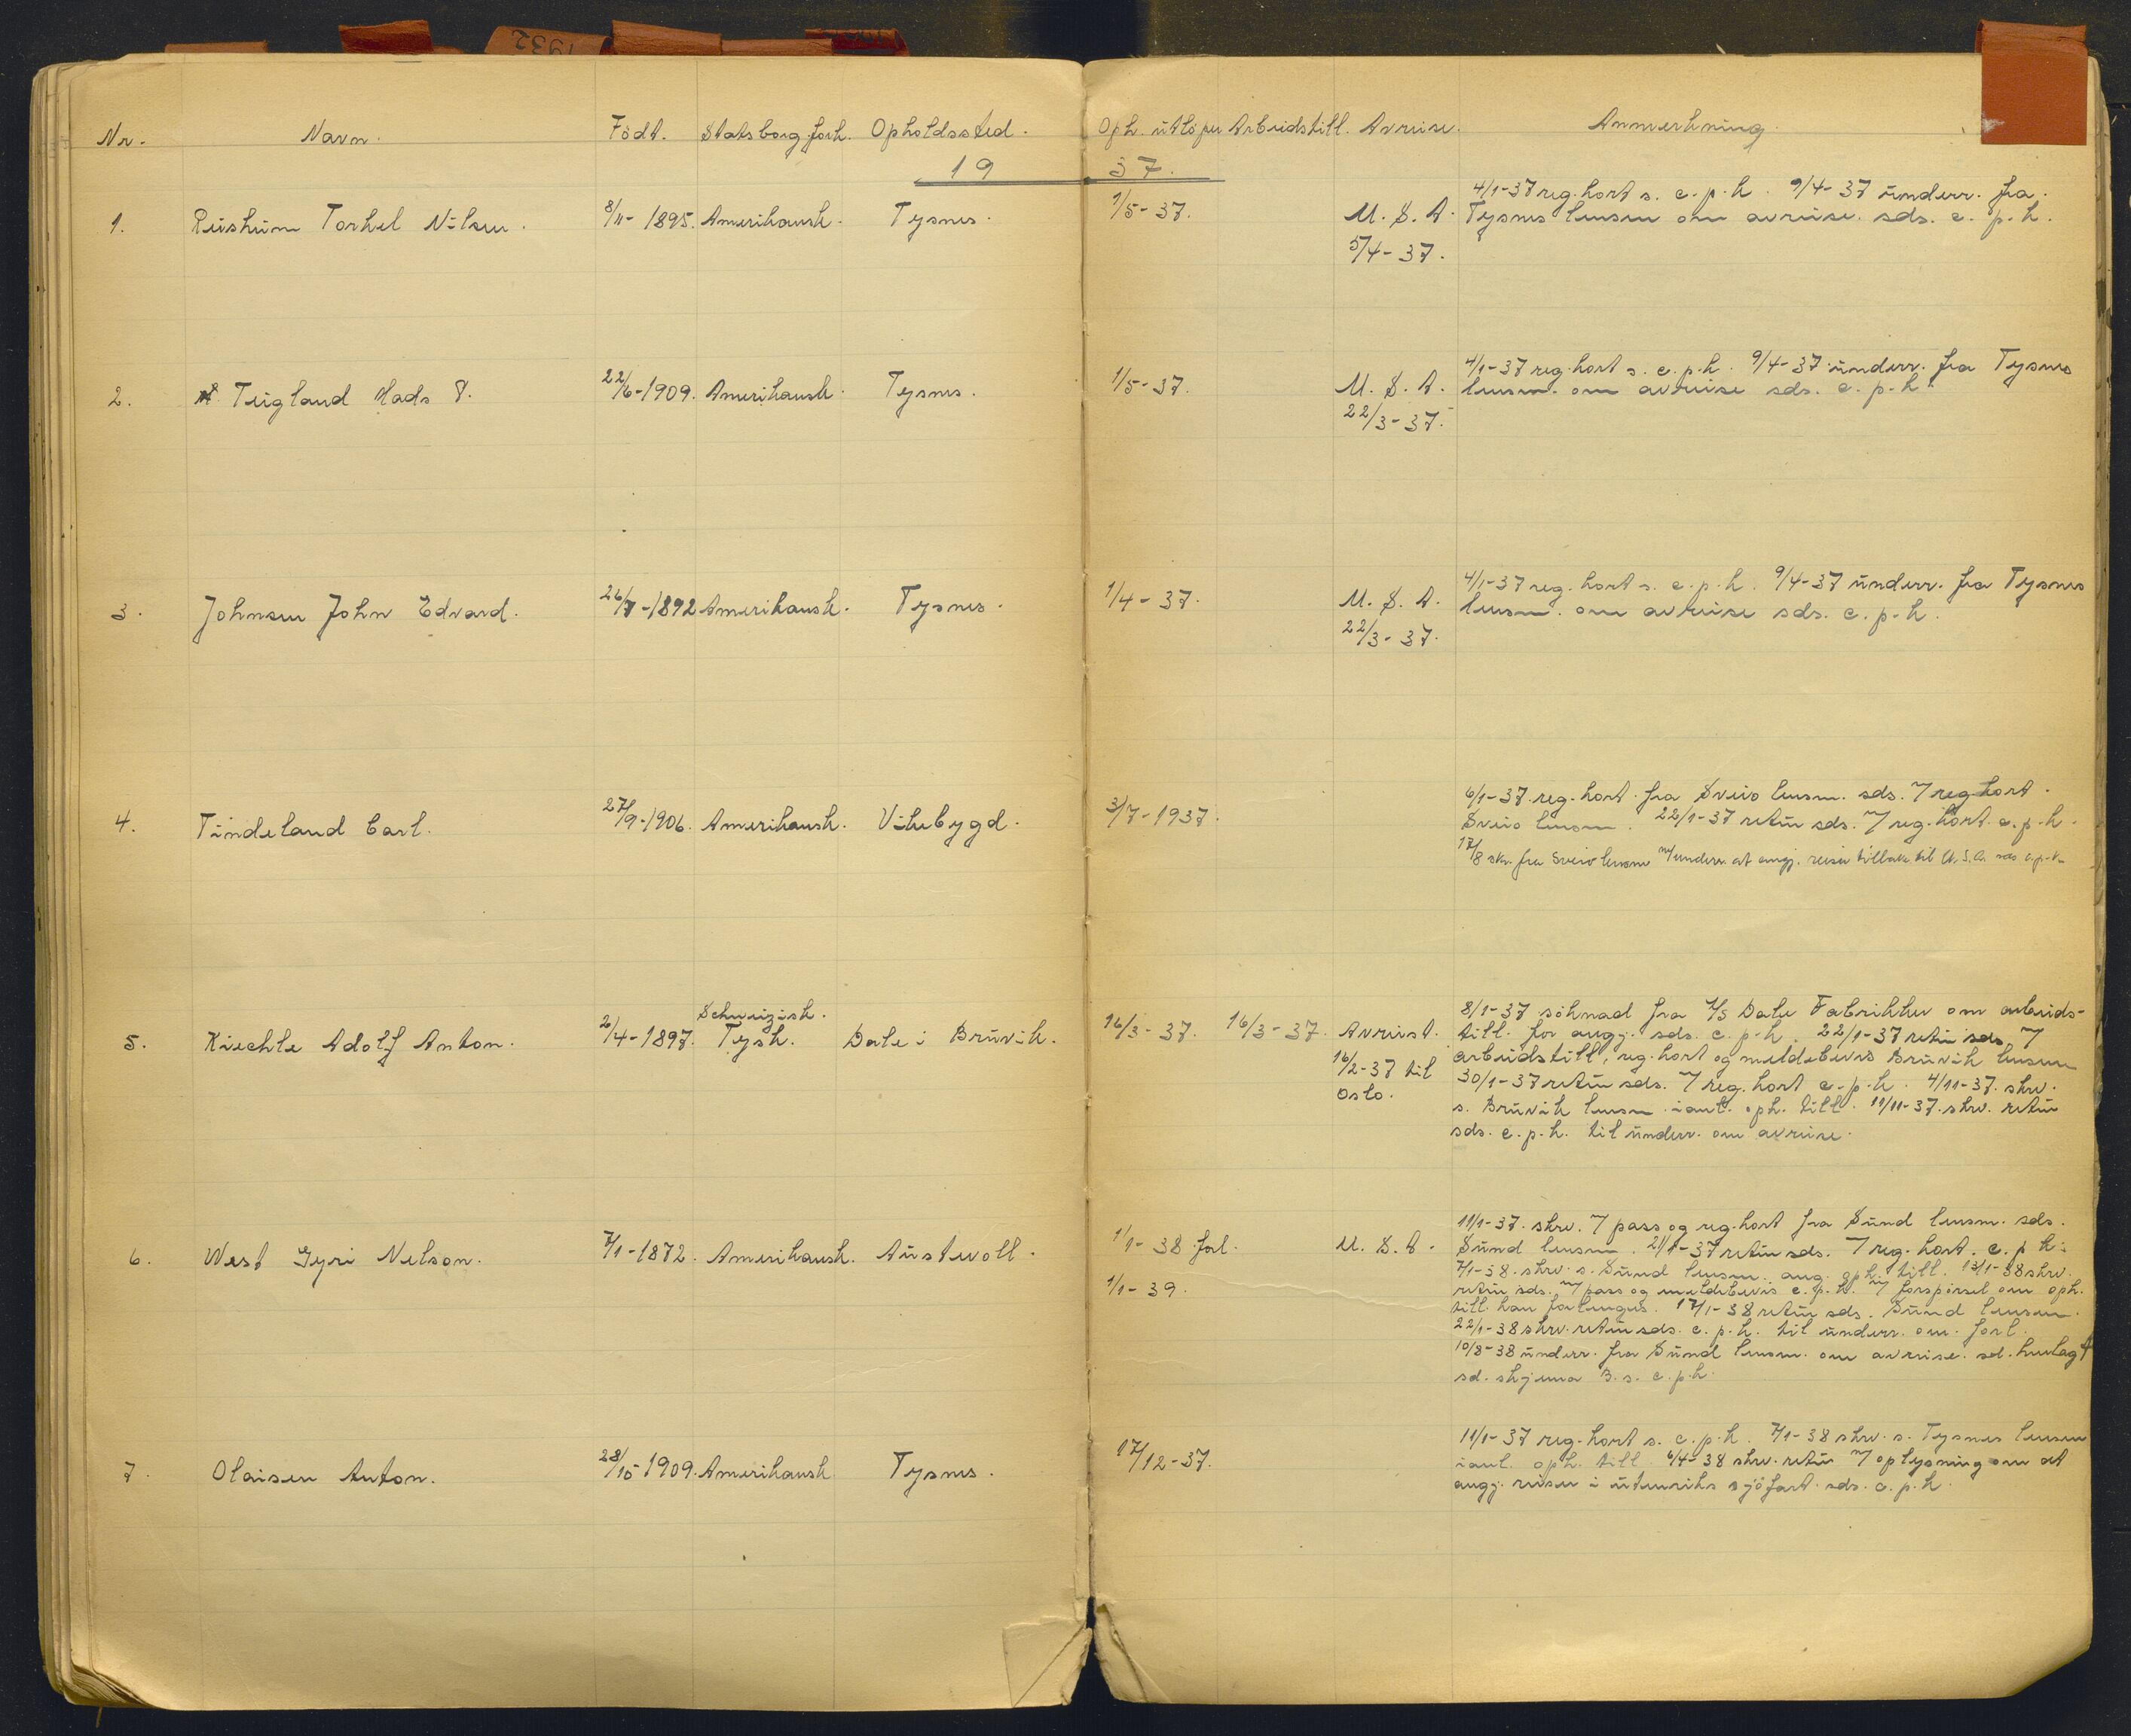 1932
Nr. Navn. Födt. Statsborg.forh. Opholdssted. Oph. utlöper Arbeidstill. Avreise. Anmerkning.
19 37.
1. Reiskum Torkel Nilsen. 8/11-1895. Amerikansk. Tysnes. 1/5-37. U. S. A. 5/4-37.
4/1-37 reg. kort s. c. p. k. 9/4-37 underr. fra
Tysnes lensm om avreise. sds. c. p. k.
2. Teigland Mads T. 22/6-1909. Amerikansk. Tysnes. 1/5-37. U. S. A. 22/3-37.
4/1-37 reg. kort s. c. p. k. 9/4-37 underr. fra Tysnes
lensm. om avreise sds. c. p. k.
3. Johnsen John Edvard. 26/7-1892 Amerikansk. Tysnes. 1/4-37. U. S. A. 22/3-37.
4/1-37 reg. kort s. c. p. k. 9/4-37 underr. fra Tysnes
lensm. om avreise sds. c. p. k.
4. Tindeland Carl. 27/9-1906. Amerikansk. Vikebygd. 3/7-1937.
6/1-37. reg. kort. fra Sveio lensm. sds. 7 reg kort.
Sveio lensm. 22/1-37 retur sds. 7 reg. kort. c. p. k.
17/8 skr. fra Sveio lensm m/underr. at angj. reiser tilbake til U. S. A. sds c. p. k.
5. Kiechle Adolf Anton. 2/4-1897. Schweizisk. Tysk. Dale i Bruvik. 16/3-37. 16/3-37. Avreist. 16/2-37 til Oslo.
8/1-37 söknad fra A/S Dale Fabrikker om arbeids-
till. for angj. sds. c. p. k. 22/1-37 retur sds. 7
arbeidstill, reg. kort og meldebevis Bruvik lensm
30/1-37 retur sds. 7 reg. kort c. p. k. 4/11-37. skrv.
s. Bruvik lensm. ianl. oph. till. 11/11-37. skrv. retur
sds. c. p. k. til underr. om avreise.
6. West Gyri Nelson. 7/1-1872. Amerikansk. Austevoll. 1/1-38 forl. 1/1-39. U. S. A.
11/1-37. skrv. 7 pass og reg. kort fra Sund lensm. sds.
Sund lensm. 21/1-37 retur sds. 7 reg. kort. c. p. k.
7/1-38. skrv. s. Sund lensm. ang. oph. till. 13/1-38 skrv.
retur sds. 7 pass og meldebevis c. p. k. 7 forspörsel om oph.
till. kan forlenges. 17/1-38 retur sds. Sund lensm.
22/1-38 skrv. retur sds. c. p. k. til underr. om. forl.
10/8-38 underr. fra Sund lensm. om avreise. sd. henlagt
sd. skjema B. s. c. p. k.
7. Olaisen Anton. 28/10-1909. Amerikansk Tysnes. 17/12-37.
11/1-37 reg. kort s. c. p. k. 7/1-38 skrv. s. Tysnes lensm
ianl. oph. till. 6/4-38 skrv. retur 7 oplysning om at
angj. reiser i utenriks sjöfart. sds. c. p. k.